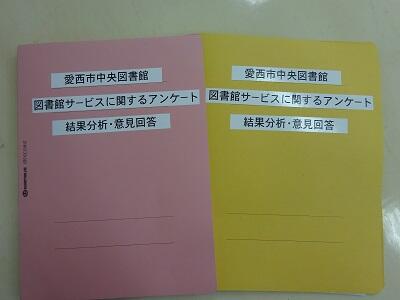 愛西市中央図書館
図書館サービスに関するアンケート
結果分析・意見回答
愛西市中央図書館
図書館サービスに関するアンケート
結果分析・意見回答